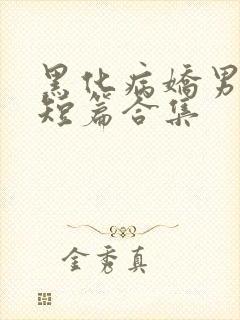 黑化病嬌男
短篇合集
金秀真